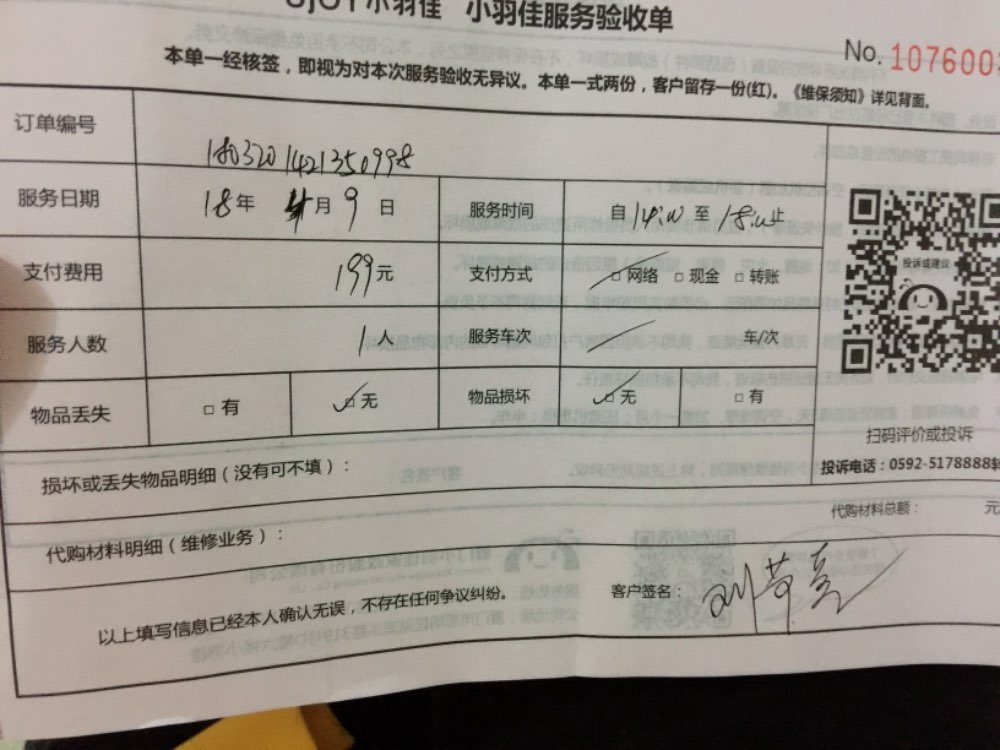 小羽佳 小羽佳服务验收单
No. 1076003
本单一经核签，即视为对本次服务验收无异议。本单一式两份，客户留存一份(红)。《维保须知》详见背面。
订单编号 1803201421350998
服务日期 18年 4月 9 日 服务时间 自 14:00 至 18:00 止
支付费用 199元 支付方式 □网络 □现金 □转账
投诉或建议
服务人数 1 人 服务车次 车/次
物品丢失 □有 ☑无 物品损坏 ☑无 □有
扫码评价或投诉
投诉电话：0592-5178888转
损坏或丢失物品明细（没有可不填）：
代购材料总额： 元
代购材料明细（维修业务）：
以上填写信息已经本人确认无误，不存在任何争议纠纷。 客户签名：